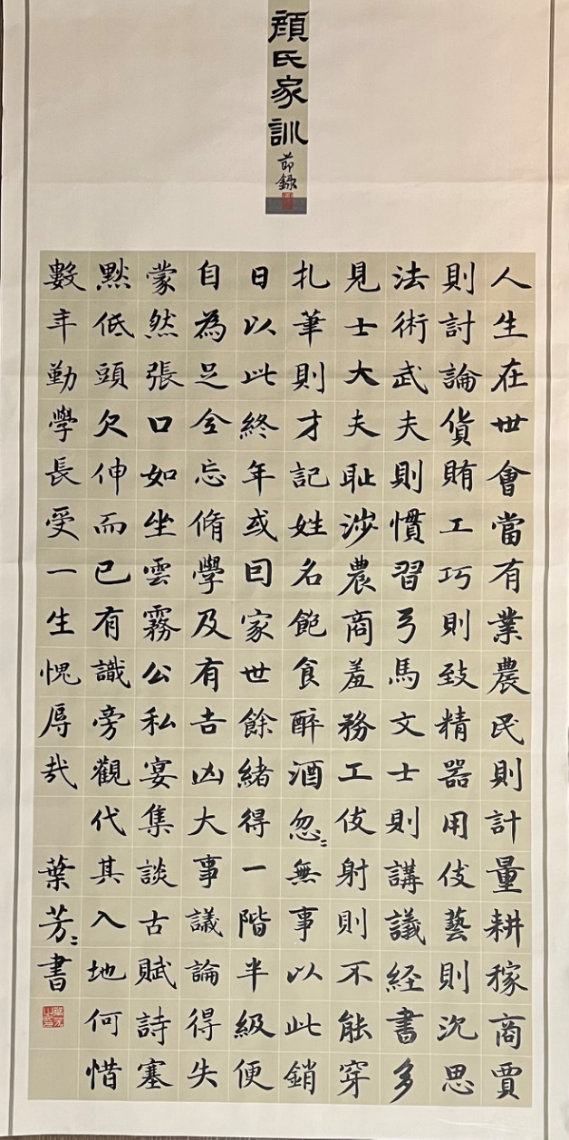 顏氏家訓
節錄
人生在世會當有業農民則計量耕稼商賈
則討論貨賄工巧則致精器用伎藝則沉思
法術武夫則慣習弓馬文士則講議經書多
見士大夫耻涉農商羞務工伎射則不能穿
扎筆則才記姓名飽食醉酒忽〻無事以此銷
日以此終年或曰家世餘緒得一階半級便
自為足全忘脩學及有吉凶大事議論得失
蒙然張口如坐雲霧公私宴集談古賦詩塞
默低頭欠伸而已有識旁觀代其入地何惜
數年勤學長受一生愧辱哉
葉芳〻書